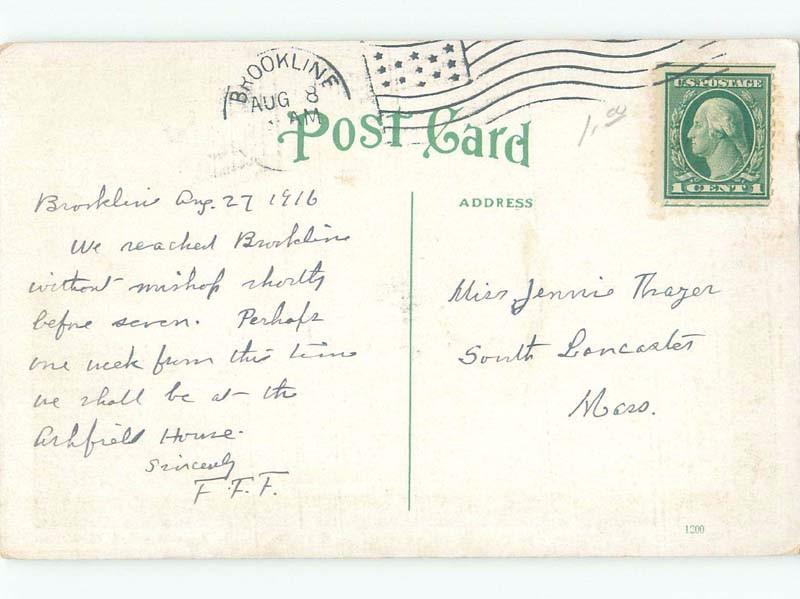 BROOKLINE
AUG 8
AM
U.S. POSTAGE
1 CENT 1
1.00
Post Card
ADDRESS
Brookline Aug. 27 1916
We reached Brookline
without mishap shortly
before seven. Perhaps
one week from this time
we shall be at the
Ashfield House.
Sincerely
F. F. F.
Miss Jennie Thayer
South Lancaster
Mass.
1200